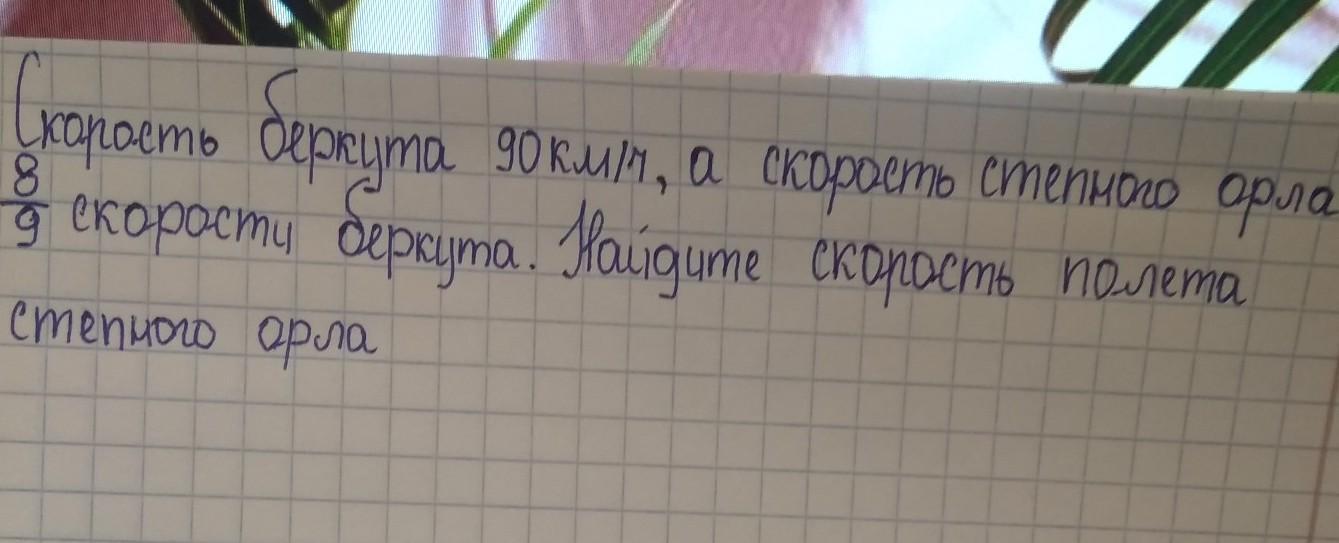 Скорость беркута 90км/ч, а скорость степного орла
8/9 скорости беркута. Найдите скорость полета
степного орла